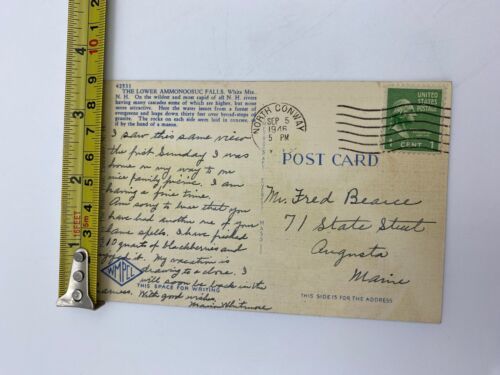 42531
THE LOWER AMMONOOSUC FALLS, White Mts.
N. H. On the wildest and most rapid of all N. H. rivers
having many cascades some of which are higher, but none
more attractive. Here the water issues from a forest of
evergreens and leaps down thirty feet over broad-steps of
granite. The rocks on each side seem laid in courses, as if
by the hand of a mason.
I saw this same view
the first Sunday I was
home on my way to our
nice family picnic. I am
having a fine time.
Am sorry to hear that you
have had another one of your
lame spells. I have picked
10 quarts of blackberries and
My vacation is
drawing to a close. I
will soon be back in the
harness. With good wishes,
Marion Whitmore
WMPCL
THIS SPACE FOR WRITING
NORTH CONWAY
SEP 5
5 PM
1946
UNITED
STATES
POSTAGE
1 CENT 1
POST CARD
Mr. Fred Bearce
71 State Street
Augusta
Maine
THIS SIDE IS FOR THE ADDRESS
1
2
3
4
5m
6
7
8
9
10
1
2
3
4
16FEET